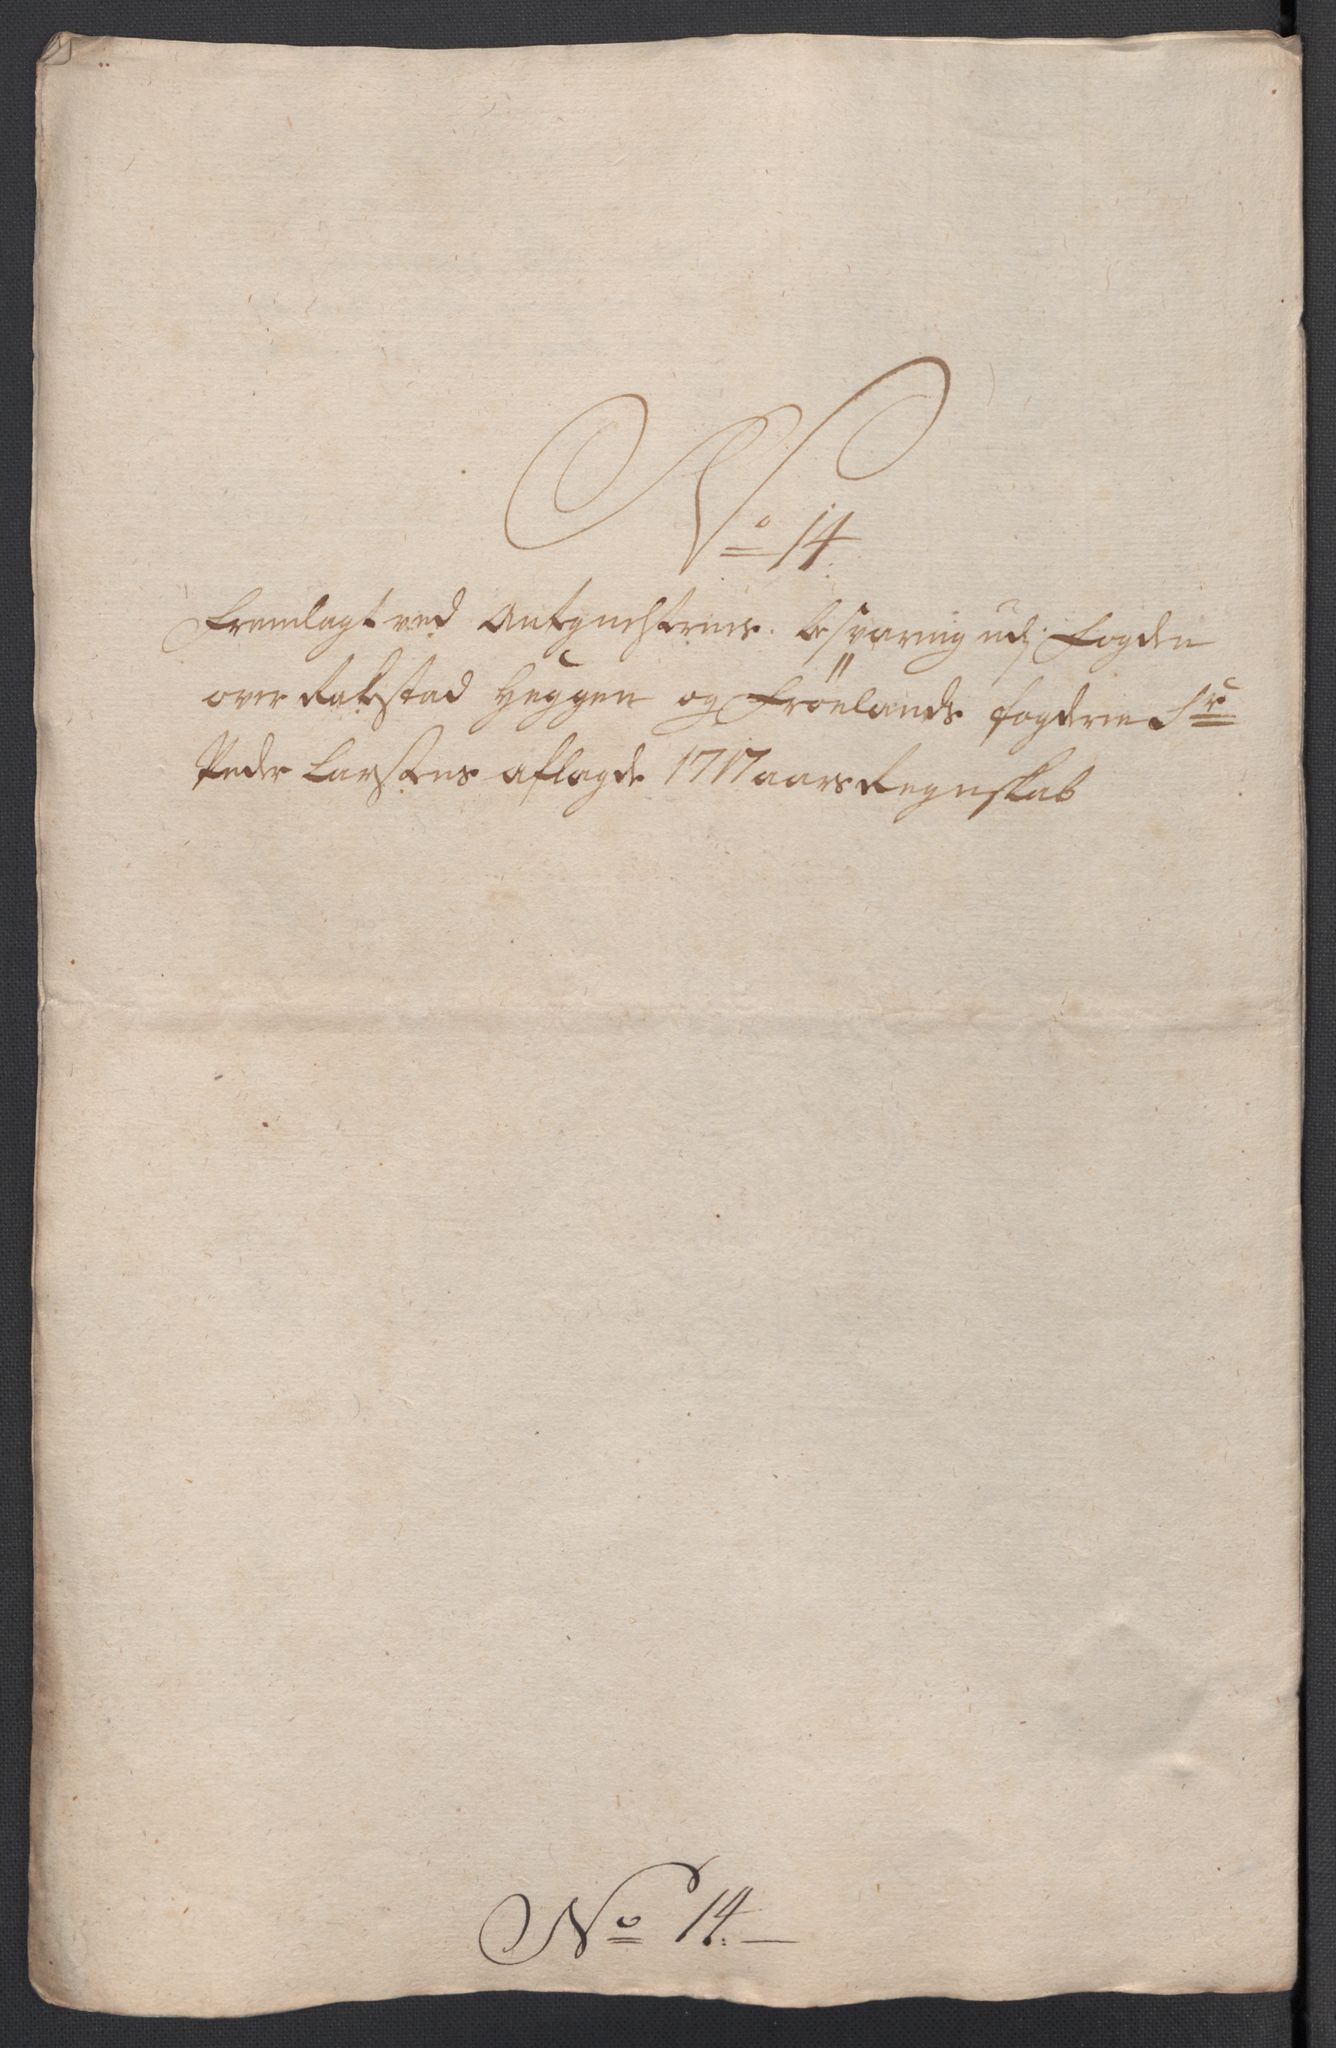 No 14.
Fremlagt ved Antegnelsernes besvaring udj Fogden
over Rakestad Heggen og Frölands fogderie Sr
Peder Larsens aflagde 1717 aars Regnskab
No 14.